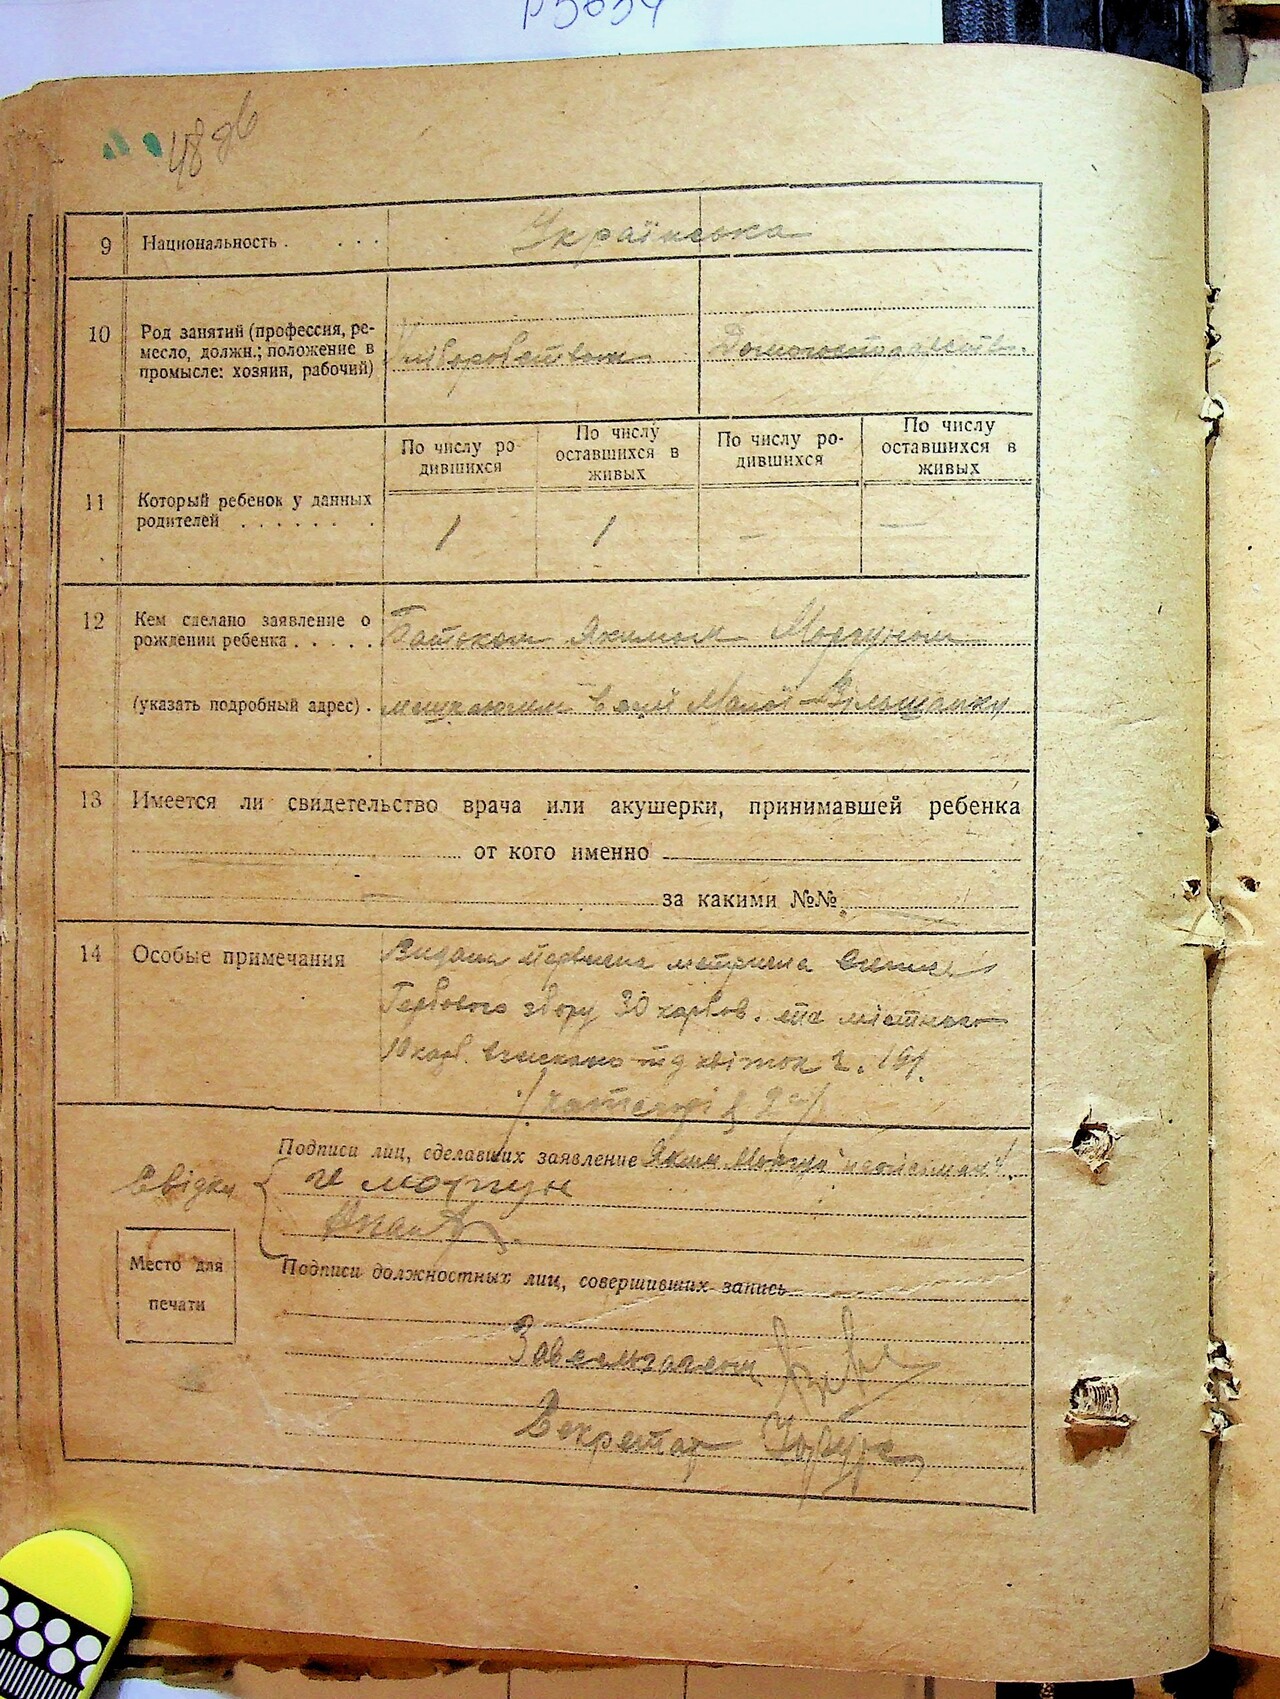 48 об
9 Национальность . . . . Українська
10 Род занятий (профессия, ре-
месло, должн.; положение в
промысле: хозяин, рабочий)
Хліборобством Домогосподарств.
11 Который ребенок у данных
родителей . . . . . . .
По числу ро-
дившихся
По числу
оставшихся в
живых
По числу ро-
дившихся
По числу
оставшихся в
живых
1 1 — —
12 Кем сделано заявление о
рождении ребенка . . . . . Батьком Якимом Моргуном
(указать подробный адрес) . мешкаючим в селі Малой-Вільшанки
13 Имеется ли свидетельство врача или акушерки, принимавшей ребенка
от кого именно
за какими №№
14 Особые примечания
Видана метрична
Гербового збору 30 карбов. та містного
10 карб.
Подписи лиц, сделавших заявление Яким Моргун
Свідки
Моргун
Место для
печати
Подписи должностных лиц, совершивших запись
Секретар